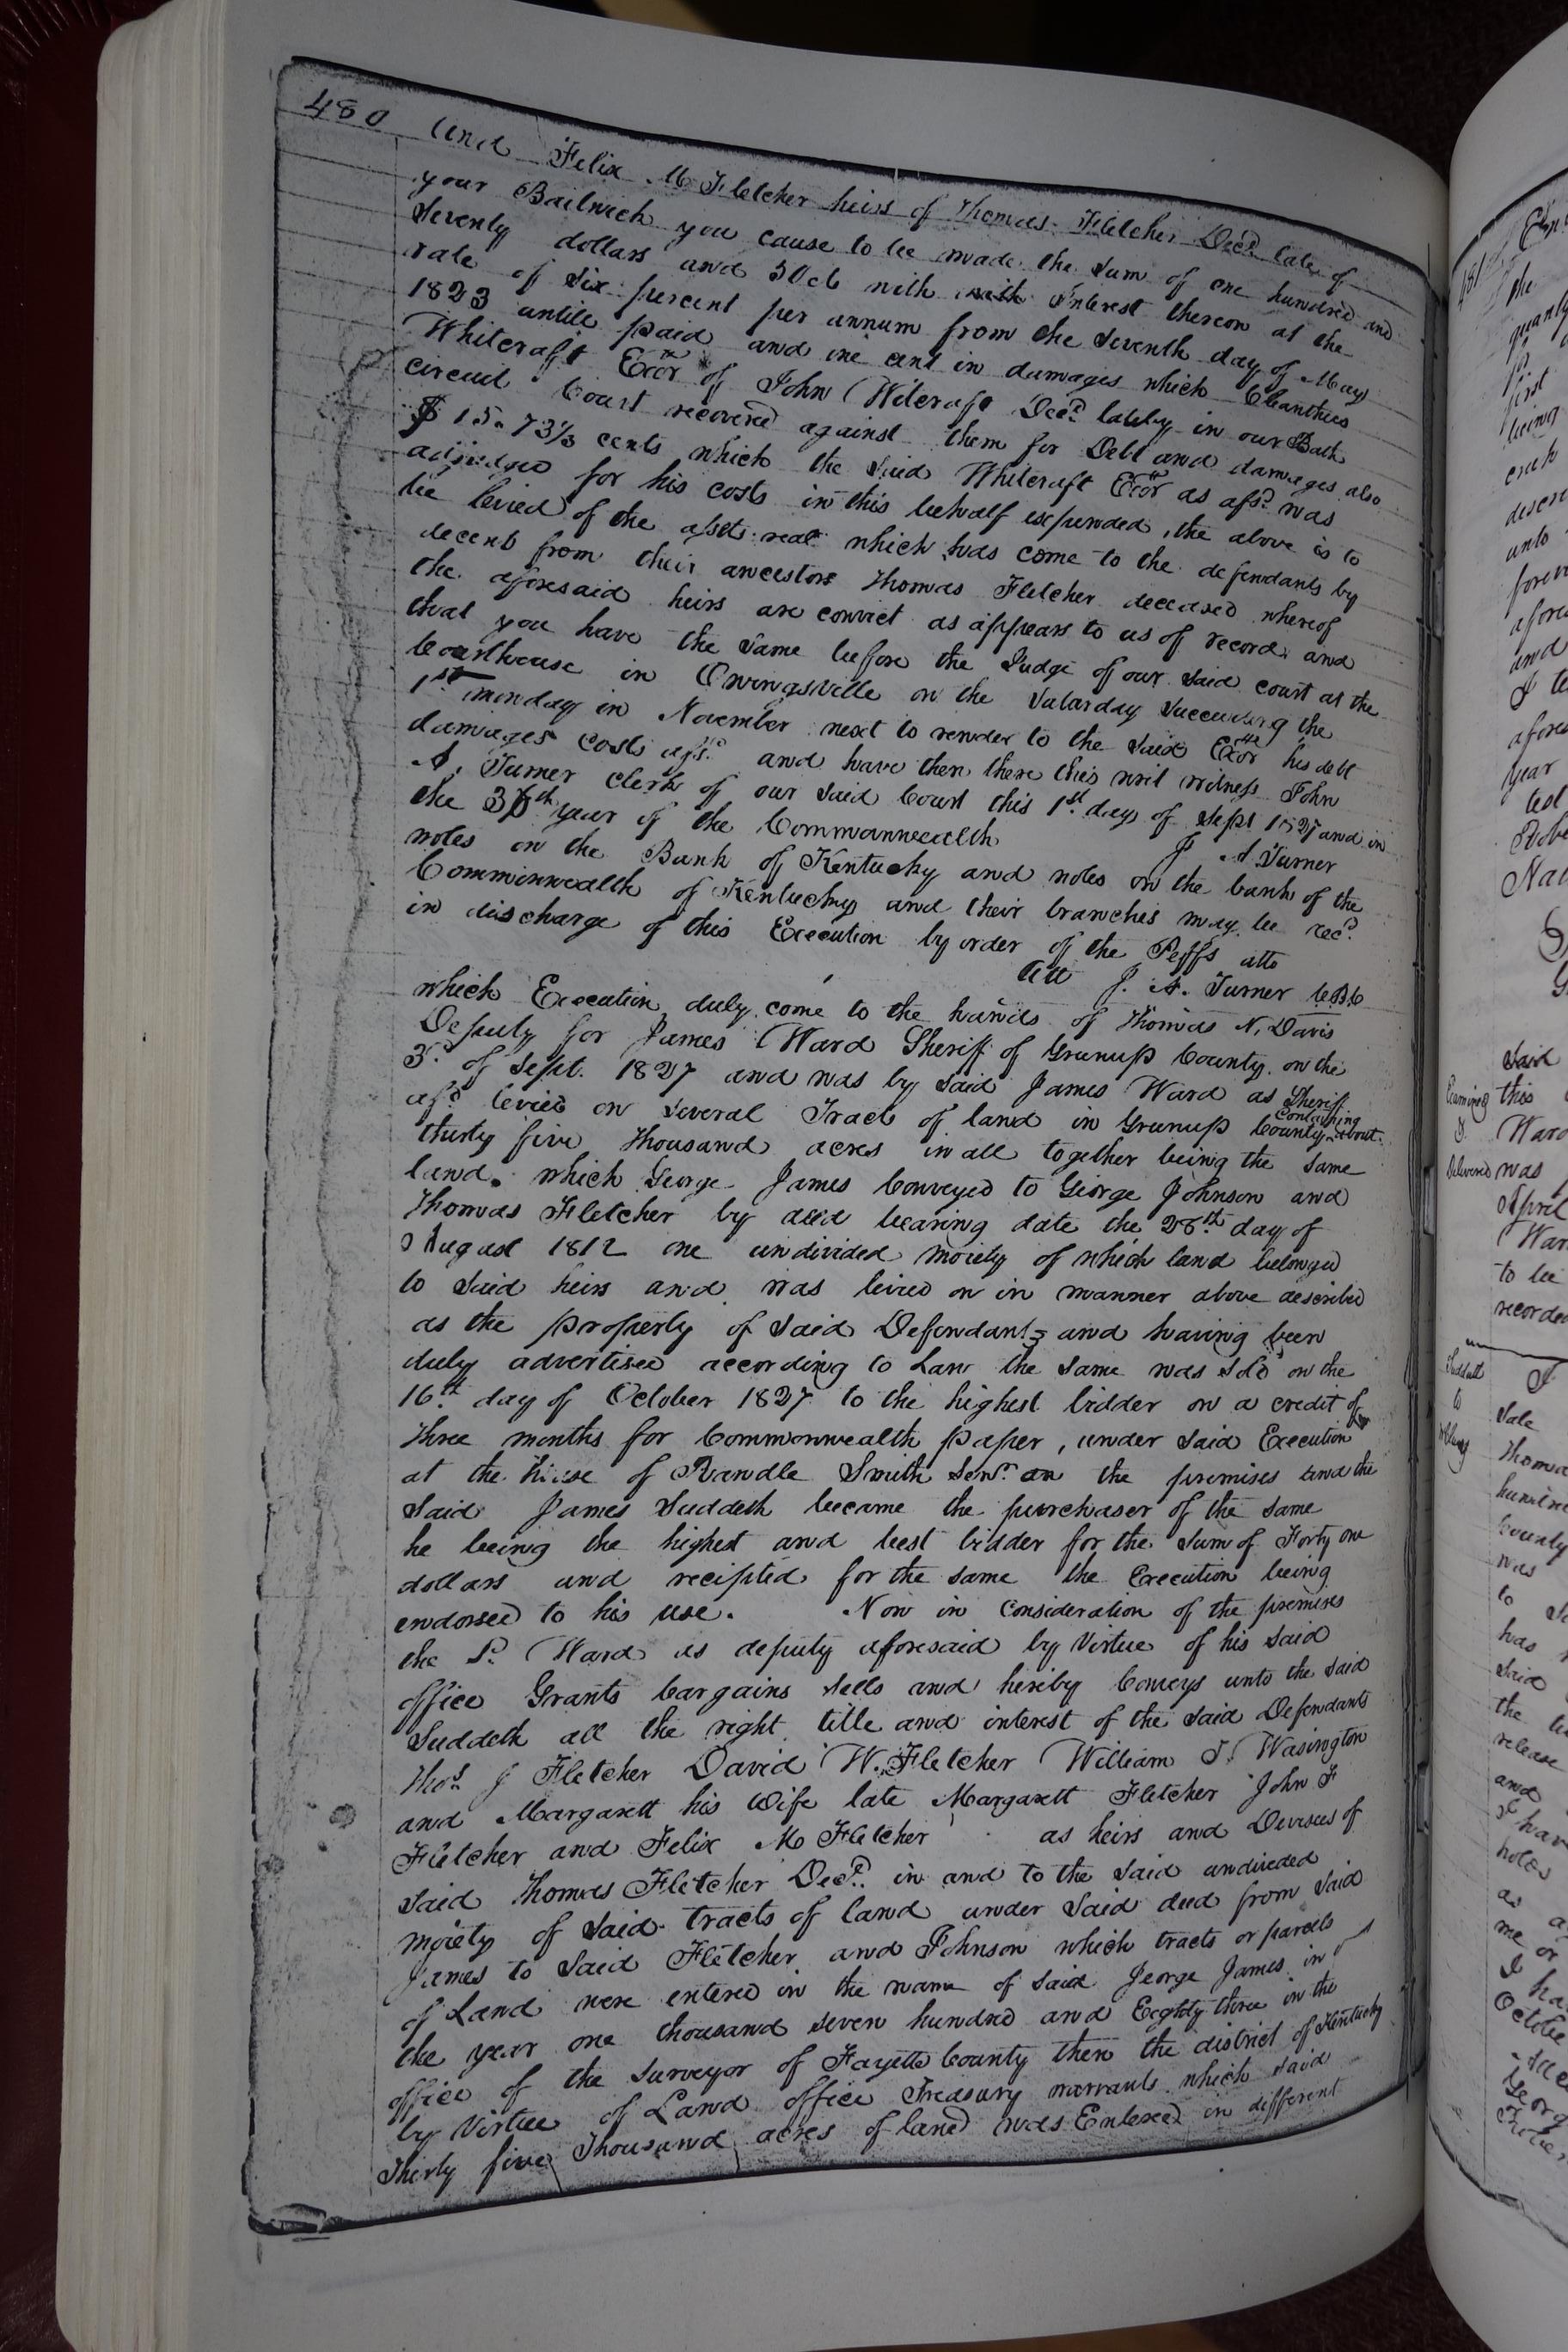 480
and Felix M Fletcher heirs of Thomas Fletcher Decd. late of
your Bailwick you cause to be made the sum of one hundred and
seventy dollars and 50cts with with Interest thereon at the
rate of six percent per annum from the seventh day of May
1823 untill paid and one cent in damages which Cleanthus
Whitcraft Exor of John Witcraft Decd lately in our Bath
circuit Court recovered against them for Debt and damages also
$15.73 1/3 cents which the said Whitcraft Exor as afsd. was
adjudged for his costs in this behalf expended, the above is to
be levied of the assets real which has come to the defendants by
decent from their ancestors Thomas Fletcher deceased whereof
the aforesaid heirs are convict as appears to us of record and
that you have the same before the Judge of our said court at the
Courthouse in Owingsville on the Saturday succeeding the
1st monday in November next to render to the said Exor his debt
damages costs afsd. and have then there this writ witness John
A. Turner clerk of our said Court this 1st. day of Sept 1827 and in
the 36th year of the Commonwealth J A Turner
notes on the Bank of Kentucky and notes on the bank of the
Commonwealth of Kentucky and their branches may be recd.
in discharge of this Execution by order of the Peffs atto
Att J. A. Turner CBC
which Execution duly come to the hands of Thomas N. Davis
Deputy for James Ward Sheriff of Greenup County on the
3d. of Sept. 1827 and was by said James Ward as Sheriff
afsd. levied on several Tracts of land in Greenup County containing about
thirty five thousand acres in all together being the same
land. which George James Conveyed to George Johnson and
Thomas Fletcher by deed bearing date the 28th. day of
August 1812 one undivided moiety of which land belonged
to said heirs and was levied on in manner above described
as the property of said Defendants and having been
duly advertised according to Law the same was sold on the
16th. day of October 1827 to the highest bidder on a credit of
three months for Commonwealth paper, under said Execution
at the house of Randle Smith Senr. on the premises and the
said James Suddeth became the purchaser of the same
he being the highest and best bidder for the sum of Forty one
dollars and recipted for the same the Execution being
endorsed to his use. Now in consideration of the premises
the Sd. Ward as deputy aforesaid by Virtue of his said
office Grants bargains sells and hereby Conveys unto the said
Suddeth all the right title and interest of the said Defendants
Thos. J Fletcher David W. Fletcher William T. Wasington
and Margarett his Wife late Margarett Fletcher John F
Fletcher and Felix M Fletcher as heirs and Devisees of
said Thomas Fletcher Decd. in and to the said undivided
moiety of said tracts of land under said deed from said
James to said Fletcher and Johnson which tracts or parcels
of Land were entered in the name of said George James in
the year one thousand seven hundred and Eighty three in the
office of the surveyor of Fayette County then the district of Kentucky
by Virtue of Land office Treasury warrants which said
Thirty five Thousand acres of land was Entered in different
481
the
first
being
each
unto
and
year
said
Examined this
&
Delivered was
April
to be
recorded
Suddeth
to
I
sale
County
was
to
has
said
the
release
and
notes
as
me or
I